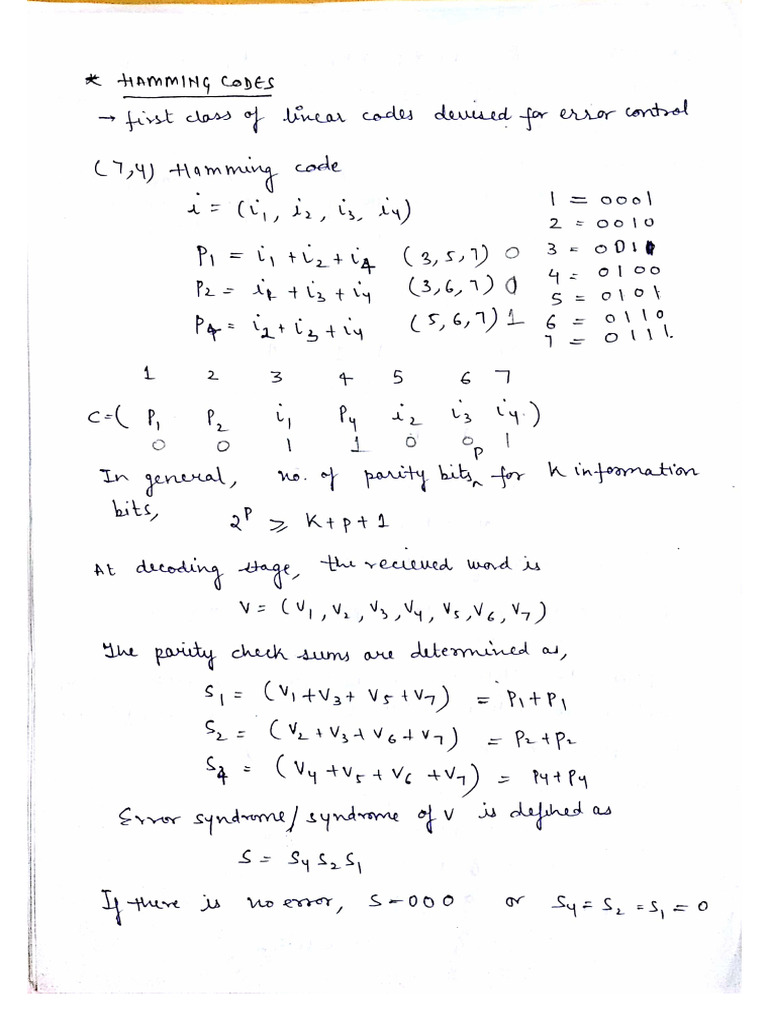 * HAMMING CODES
→ first class of linear codes devised for error control
(7,4) Hamming code
i = (i1, i2, i3, i4)
1 = 0001
2 = 0010
P1 = i1 + i2 + i4 (3,5,7) 0
3 = 0011
P2 = i1 + i3 + i4 (3,6,7) 0
4 = 0100
5 = 0101
P4 = i2 + i3 + i4 (5,6,7) 1
6 = 0110
7 = 0111.
1 2 3 4 5 6 7
C = ( P1 P2 i1 P4 i2 i3 i4. )
0 0 1 1 0 0 1
In general, no. of parity bits p for K information
bits, 2^P ⩾ K + P + 1
At decoding stage, the recieved word is
V = (V1, V2, V3, V4, V5, V6, V7)
The parity check sums are determined as,
S1 = (V1 + V3 + V5 + V7) = P1 + P1
S2 = (V2 + V3 + V6 + V7) = P2 + P2
S4 = (V4 + V5 + V6 + V7) = P4 + P4
Error syndrome/syndrome of V is defined as
S = S4 S2 S1
If there is no error, S = 000 or S4 = S2 = S1 = 0